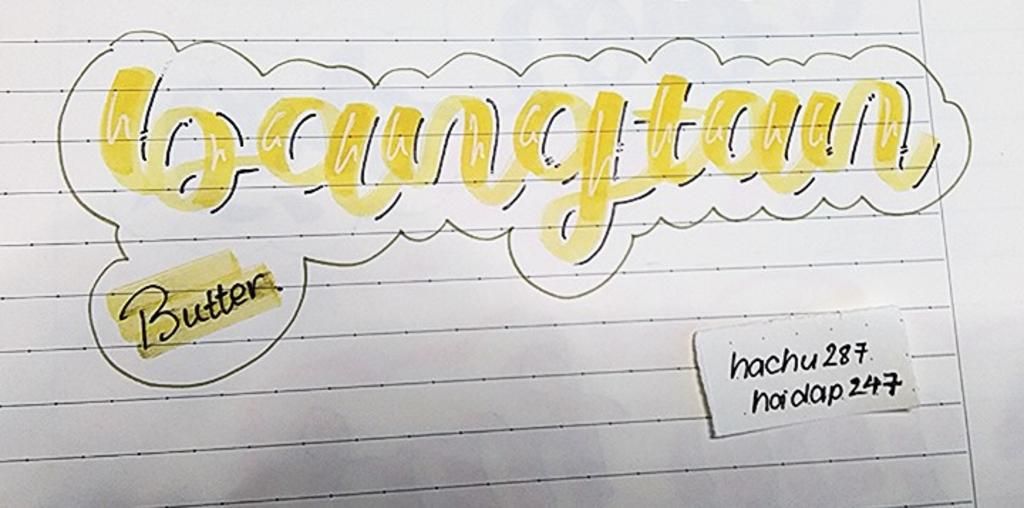 bangtan
Butter.
hachu287
hoidap247